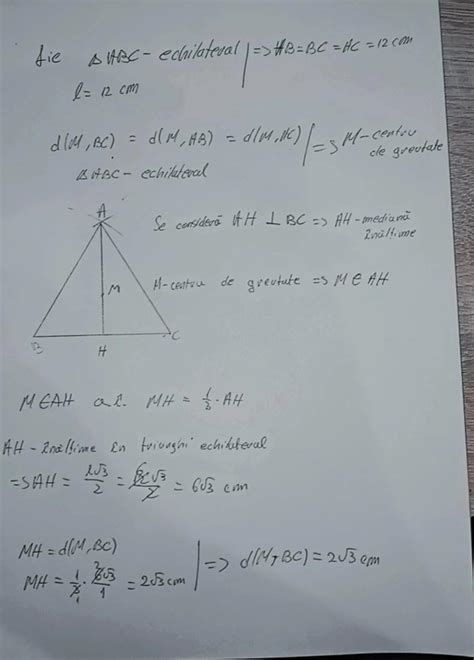 Fie △ABC - echilateral | => AB=BC=AC=12 cm
l= 12 cm
d(M,BC) = d(M,AB) = d(M,AC) | => M-centru de greutate
△ABC - echilateral
A
Se consideră AH ⊥ BC => AH-mediană
înălțime
M
M-centru de greutate => M∈AH
B
H
C
M∈AH a.î. MH = 1/3 · AH
AH - înălțime în triunghi echilateral
=> AH = l√3/2 = √3/2 = 6√3 cm
MH = d(M,BC)
MH = 1/3 · 6√3/1 = 2√3 cm | => d(M,BC) = 2√3 cm